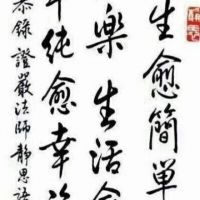 生愈簡單
樂生活
純愈幸
恭錄證嚴法師靜思語